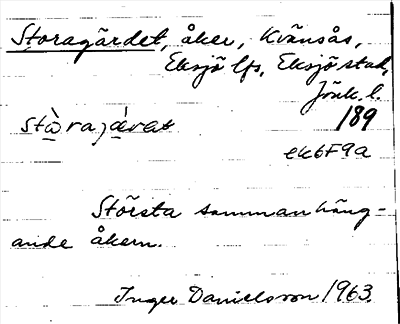 Storagärdet, åker, Kvänsås,
Eksjö lfs, Eksjö stad,
Jönk. l.
189
stò̱rajá̱rat
ek6F9a
Största sammanhäng-
ande åkern.
Inger Danielsson 1963.